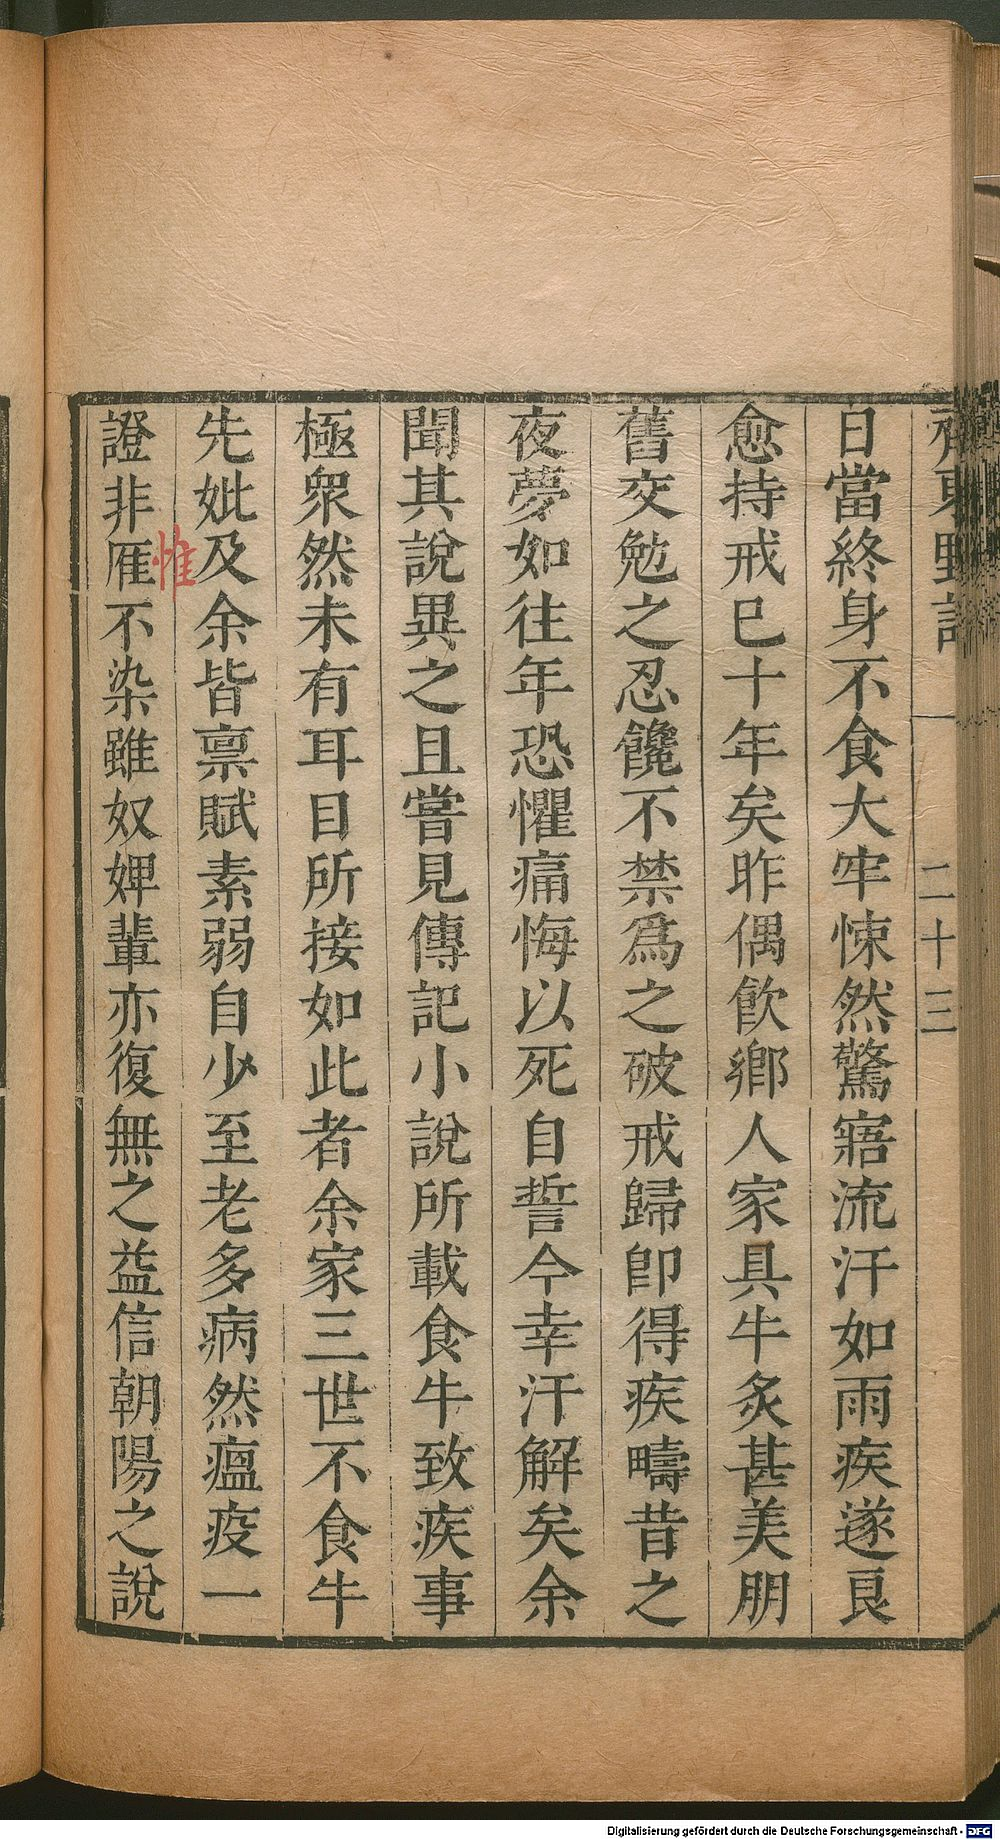 齊東野語
二十三
日當終身不食大牢悚然驚寤流汗如雨疾遂良
愈持戒巳十年矣昨偶飲鄉人家具牛炙甚美朋
舊交勉之忍饞不禁爲之破戒歸卽得疾疇昔之
夜夢如往年恐懼痛悔以死自誓今幸汗解矣余
聞其說異之且嘗見傳記小說所載食牛致疾事
極衆然未有耳目所接如此者余家三世不食牛
先妣及余皆禀賦素弱自少至老多病然瘟疫一
惟
證非雁不染雖奴婢輩亦復無之益信朝陽之說
Digitalisierung gefördert durch die Deutsche Forschungsgemeinschaft - DFG